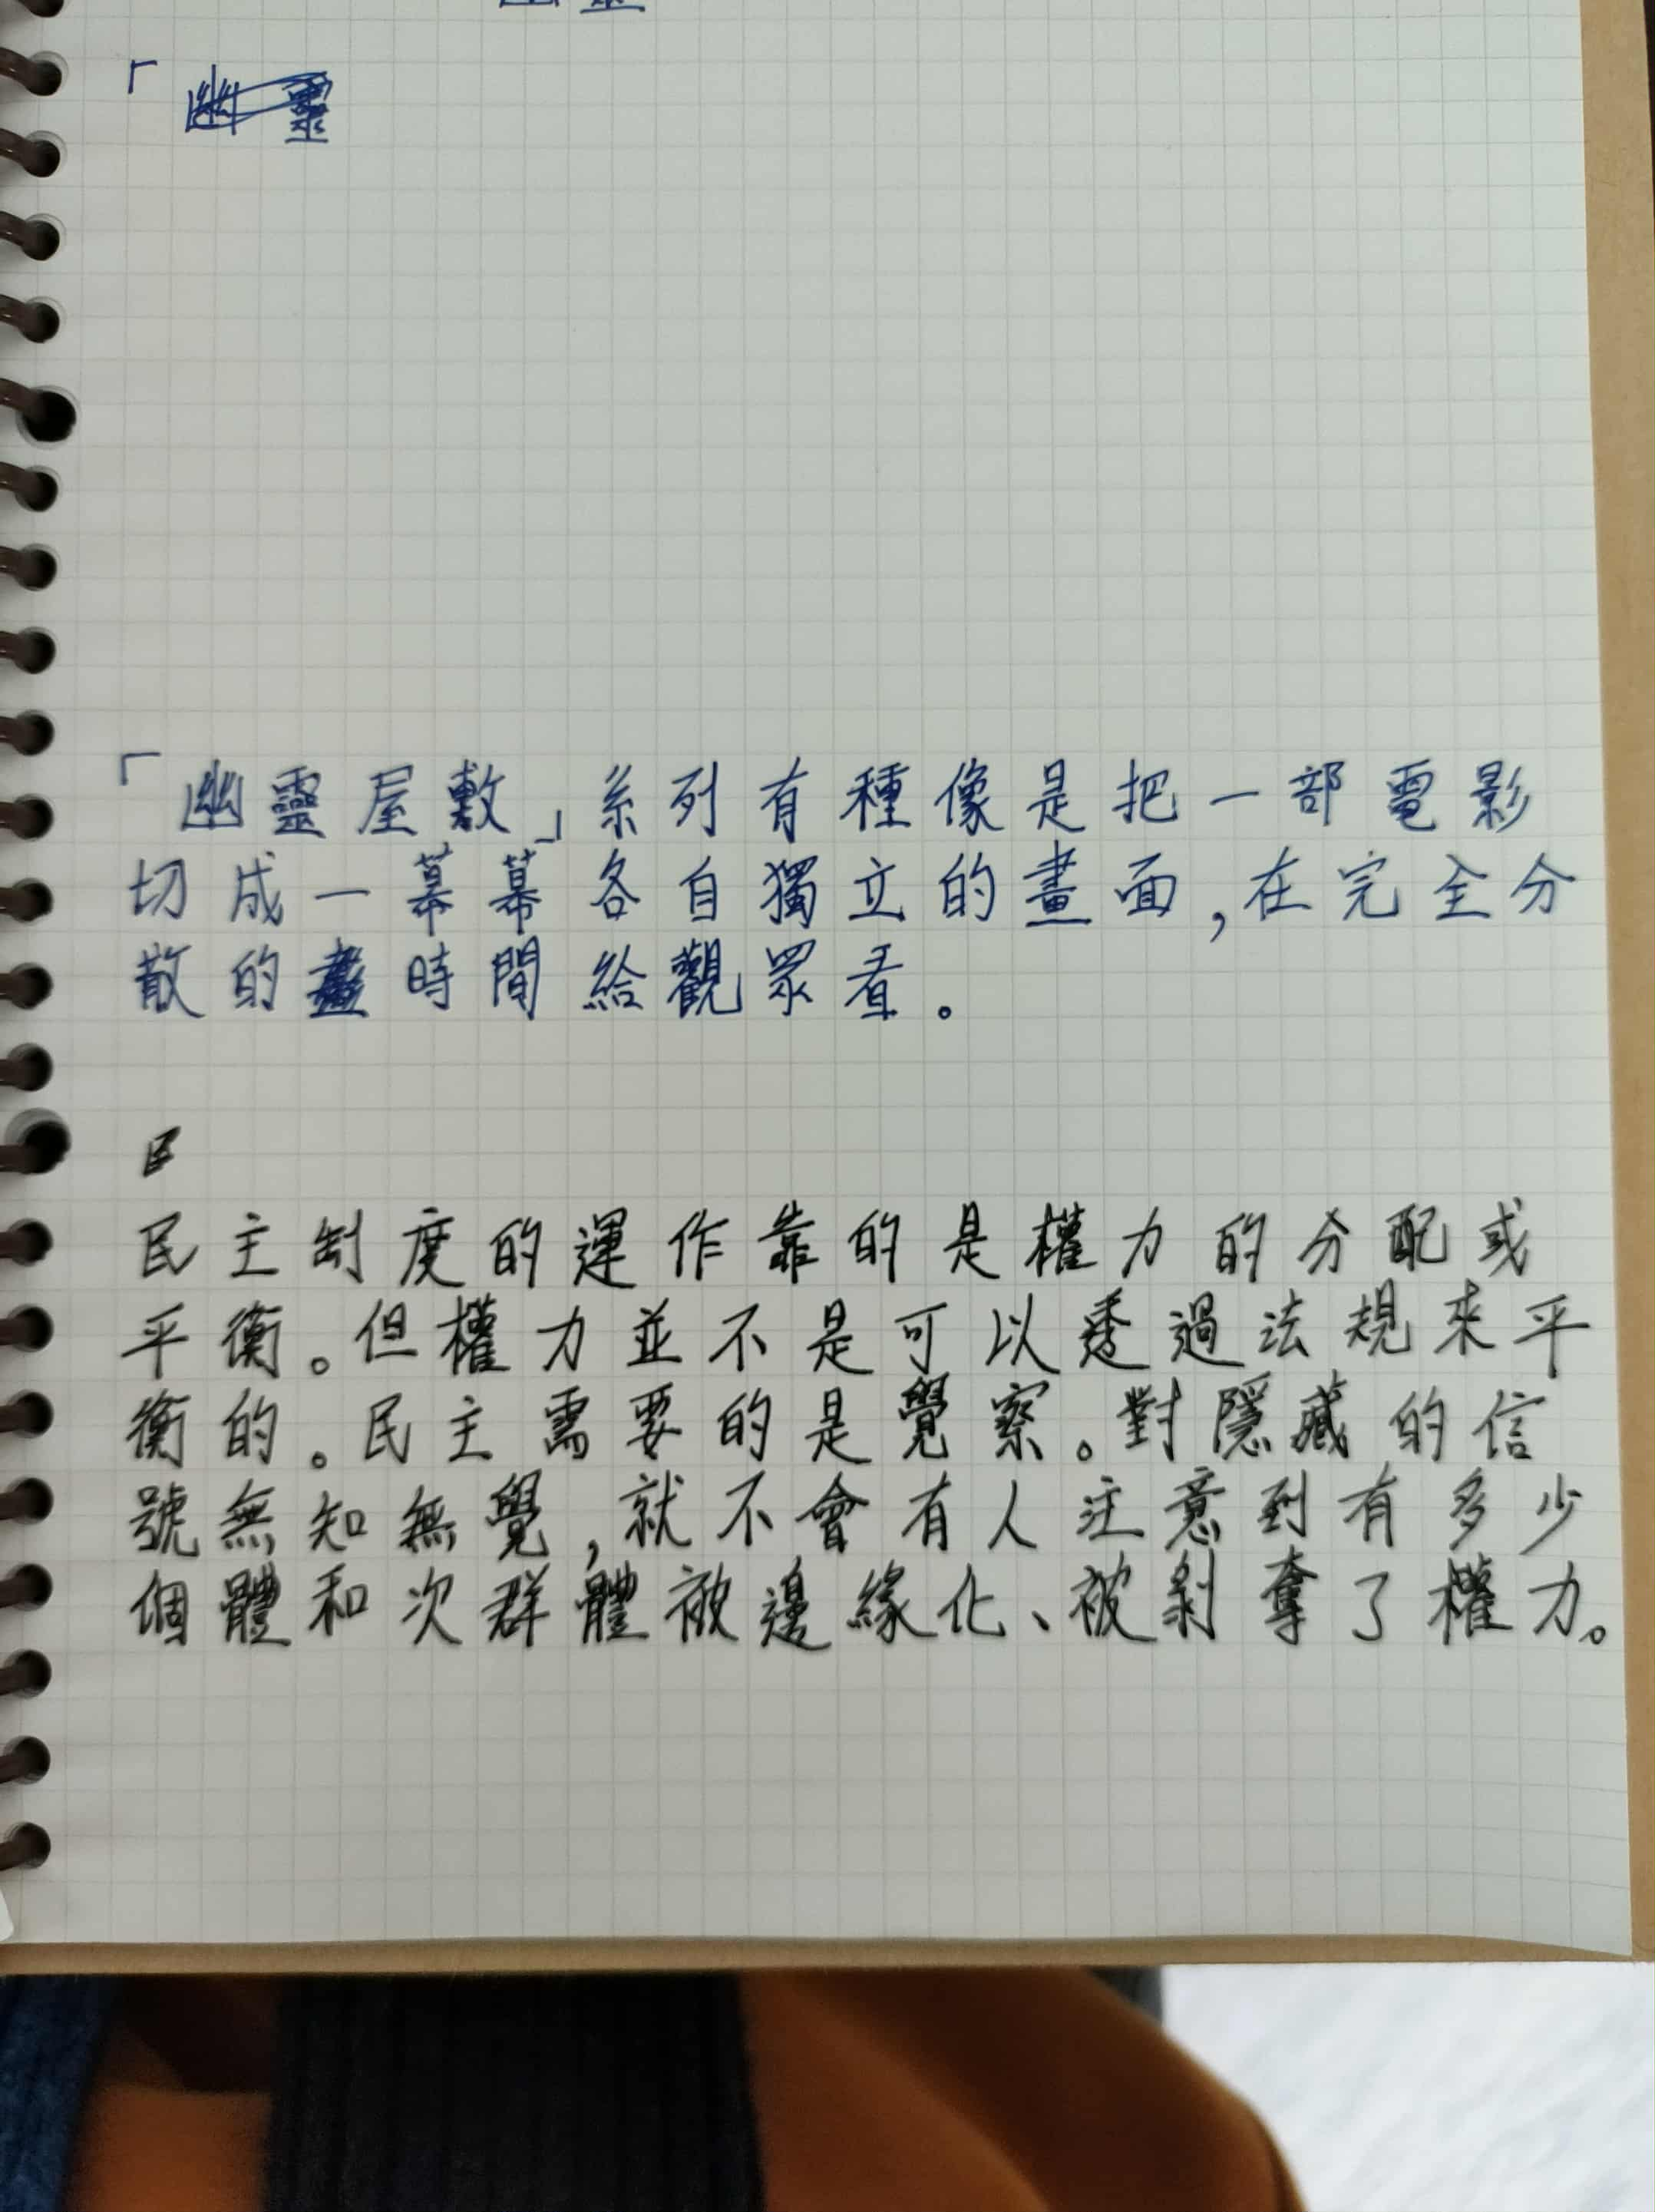 「幽靈
「幽靈屋敷」系列有種像是把一部電影
切成一幕幕各自獨立的畫面,在完全分
散的時間給觀眾看。
民
民主制度的運作靠的是權力的分配或
平衡。但權力並不是可以透過法規來平
衡的。民主需要的是覺察。對隱藏的信
號無知無覺,就不會有人注意到有多少
個體和次群體被邊緣化、被剝奪了權力。